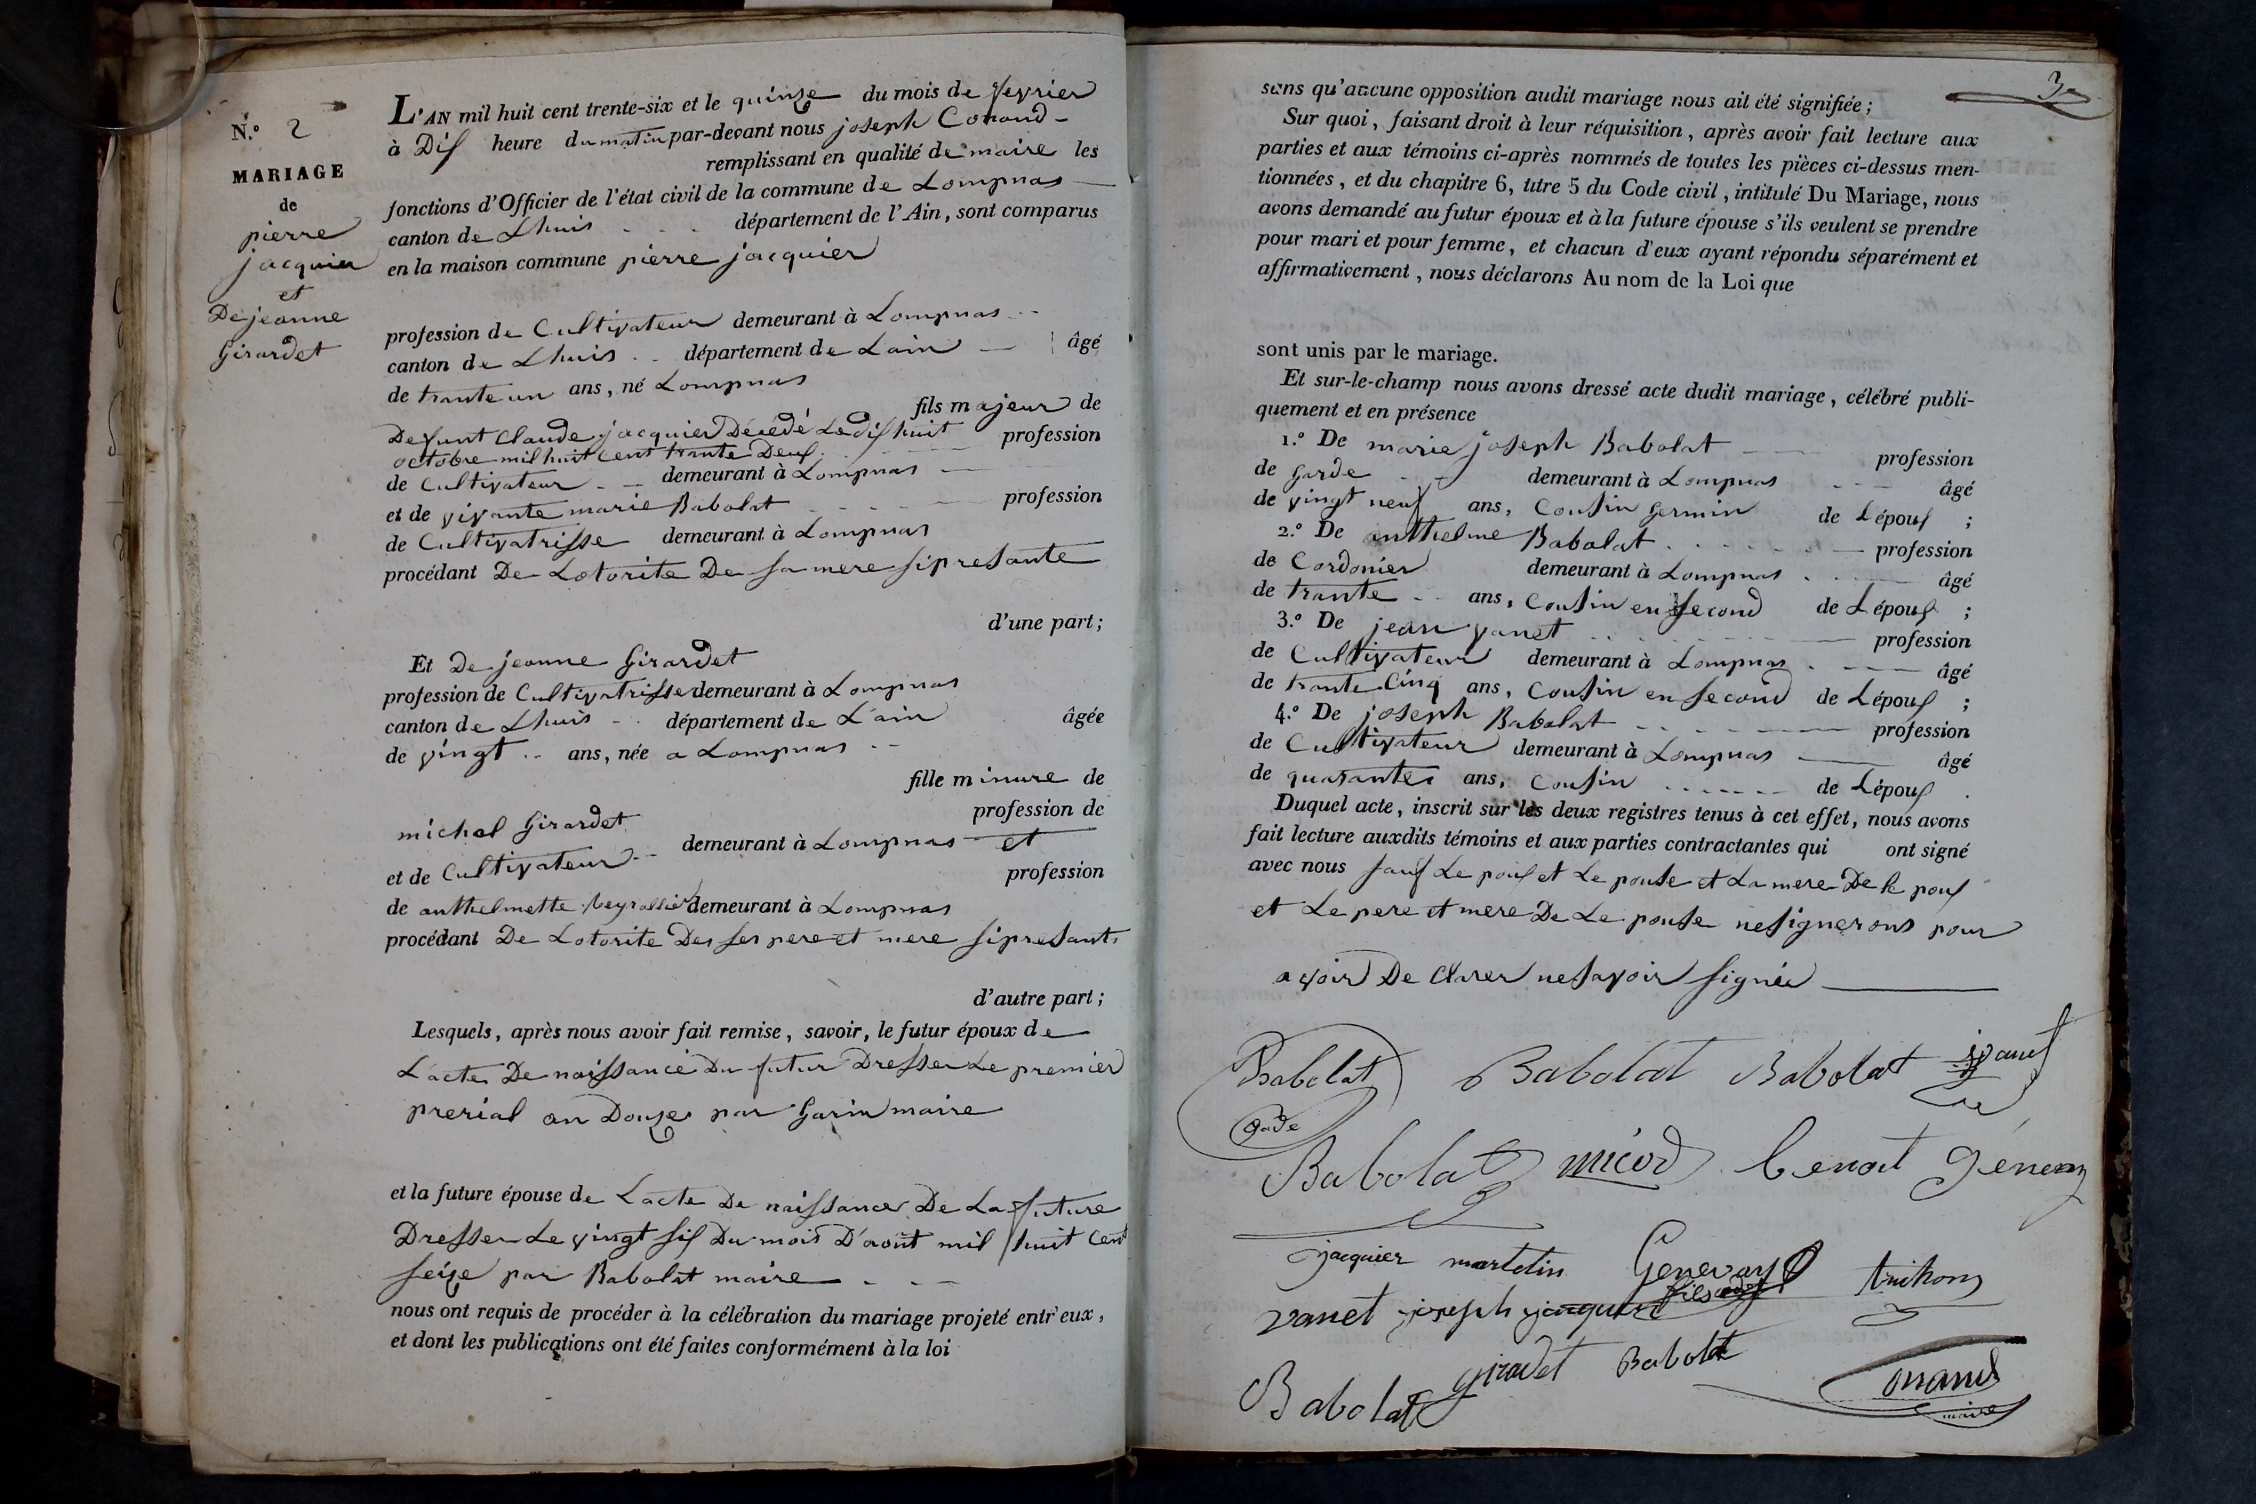 N.° 2
MARIAGE
de
pierre
jacquier
et
De jeanne
Girardet
L'AN mil huit cent trente-six et le quinze du mois de fevrier
à Dix heure du matin par-devant nous joseph Conand
remplissant en qualité de maire les
fonctions d'Officier de l'état civil de la commune de Lompnas
canton de Lhuis département de l'Ain, sont comparus
en la maison commune pierre jacquier
profession de Cultivateur demeurant à Lompnas
canton de Lhuis département de Lain âgé
de trante un ans, né Lompnas
fils majeur de
Defunt Claude jacquier Décédé Le dix huit
octobre mil huit cent trante Deux profession
de Cultivateur demeurant à Lompnas
et de vivante marie Babolat profession
de Cultivatrisse demeurant à Lompnas
procédant De Lotorite De sa mere si presante
d'une part;
Et De jeanne Girardet
profession de Cultivatrisse demeurant à Lompnas
canton de Lhuis département de L'ain âgée
de vingt ans, née a Lompnas
fille minure de
michel Girardet profession de
et de Cultivateur demeurant à Lompnas et
profession
de anthelmette demeurant à Lompnas
procédant De Lotorite Des ses pere et mere si presants
d'autre part;
Lesquels, après nous avoir fait remise, savoir, le futur époux de
L'acte De naissance Du futur Dresser Le premier
prerial an Douze par Garin maire
et la future épouse de Lacte De naissance De La future
Dresser Le vingt six Du mois D'août mil huit Cent
seize par Babolat maire
nous ont requis de procéder à la célébration du mariage projeté entr'eux,
et dont les publications ont été faites conformément à la loi
3
sans qu'aucune opposition audit mariage nous ait été signifiée;
Sur quoi, faisant droit à leur réquisition, après avoir fait lecture aux
parties et aux témoins ci-après nommés de toutes les pièces ci-dessus men-
tionnées, et du chapitre 6, titre 5 du Code civil, intitulé Du Mariage, nous
avons demandé au futur époux et à la future épouse s'ils veulent se prendre
pour mari et pour femme, et chacun d'eux ayant répondu séparément et
affirmativement, nous déclarons Au nom de la Loi que
sont unis par le mariage.
Et sur-le-champ nous avons dressé acte dudit mariage, célébré publi-
quement et en présence
1.° De marie joseph Babolat profession
de Garde demeurant à Lompnas âgé
de vingt neuf ans, Cousin Germin de Lépoux ;
2.° De anthelme Babolat profession
de Cordonier demeurant à Lompnas âgé
de trante ans, Cousin en second de Lépoux ;
3.° De jean vanet profession
de Cultivateur demeurant à Lompnas âgé
de trante Cinq ans, Cousin en second de Lépoux ;
4.° De joseph Babolat profession
de Cultivateur demeurant à Lompnas âgé
de quarante ans, Cousin de Lépoux .
Duquel acte, inscrit sur les deux registres tenus à cet effet, nous avons
fait lecture auxdits témoins et aux parties contractantes qui ont signé
avec nous sauf Le poux et Le pouse et La mere De le poux
et Le pere et mere De Le pouse ne signerons pour
avoir De Clarer ne savoir signée
Babolat Babolat Babolat jvanet
Gade
Babolat micod benoit
jacquier martetin Genevay trichon
vanet joseph jacquier
Babolat giradet Babolat onand
maire